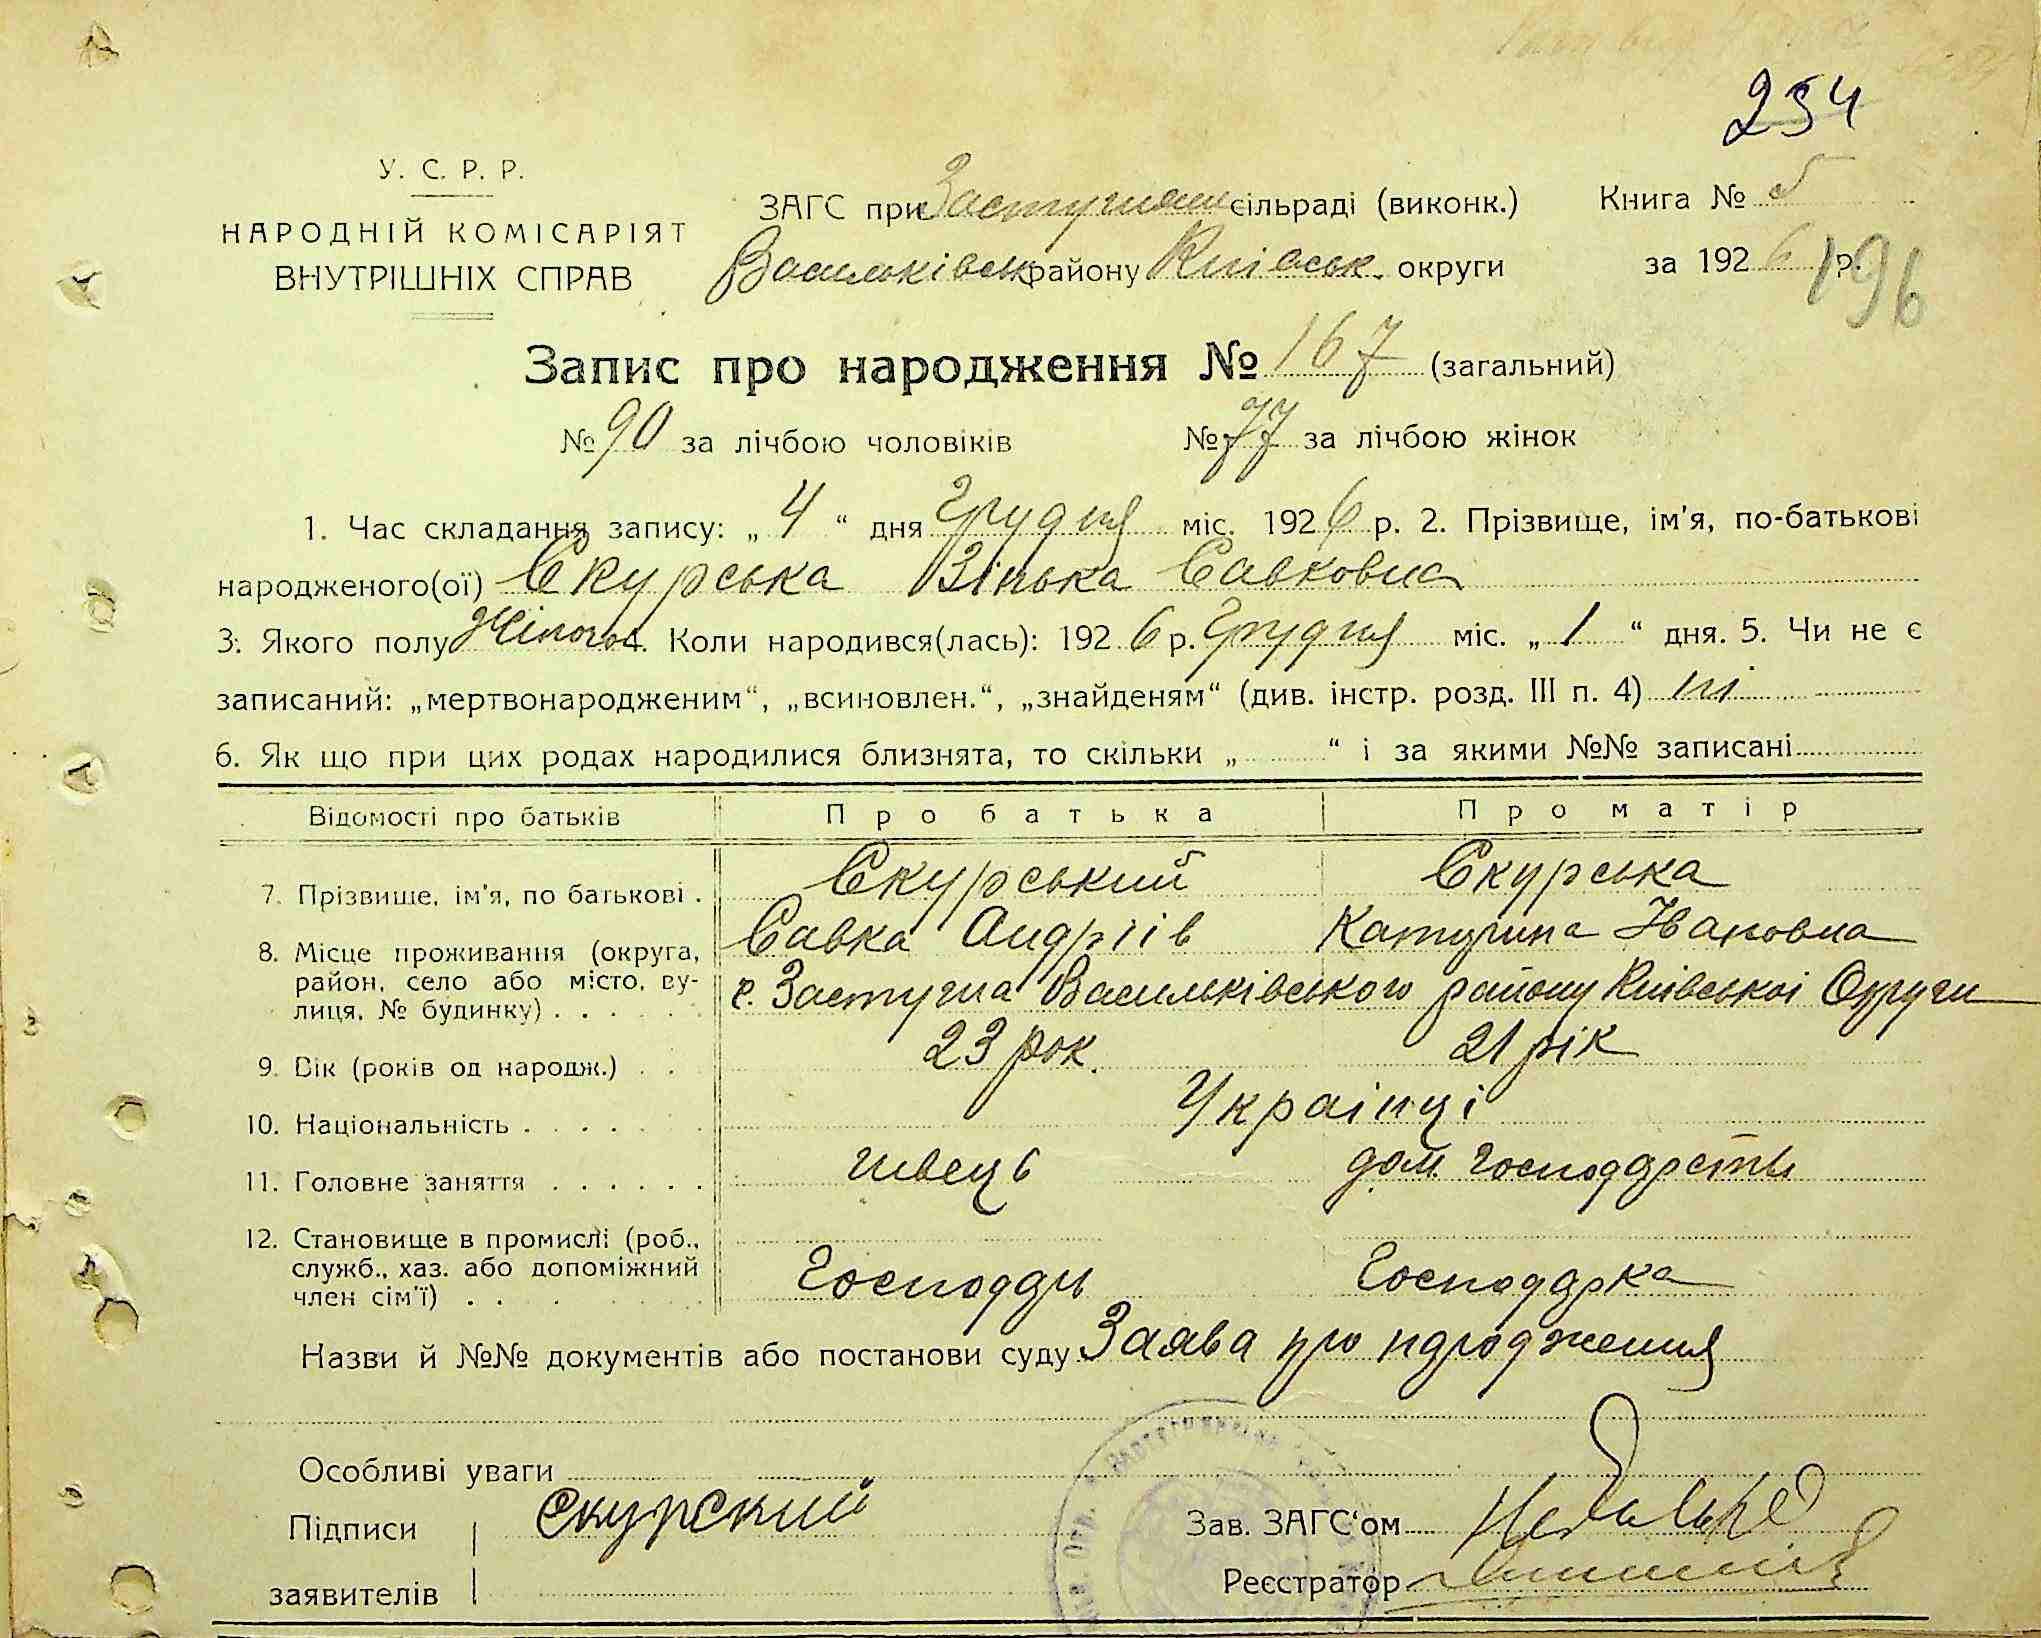 254
У. С. Р. Р.
НАРОДНІЙ КОМІСАРІЯТ
ВНУТРІШНІХ СПРАВ
ЗАГС при Застугнян сільраді (виконк.)
Васильківськ району Київськ. округи
Книга № 5
за 1926 р.
196
Запис про народження № 167 (загальний)
№ 90 за лічбою чоловіків № 77 за лічбою жінок
1. Час складання запису: „ 4 “ дня Грудня міс. 1926 р. 2. Прізвище, ім'я, по-батькові
народженого(ої) Скурська Зінька Савковна
3. Якого полу Жіночо 4. Коли народився(лась): 1926 р. Грудня міс. „ 1 “ дня. 5. Чи не є
записаний: „мертвонародженим“, „всиновлен.“, „знайденям“ (див. інстр. розд. III п. 4) ні
6. Як що при цих родах народилися близнята, то скільки „ “ і за якими №№ записані
Відомості про батьків Про батька Про матір
7. Прізвище, ім'я, по батькові . Скурський Скурська
Савка Андріів Катерина Івановна
8. Місце проживання (округа,
район, село або місто, ву-
лиця, № будинку) . . . . . .
с. Застугна Васильківського району Київскоі Округи
9. Вік (років од народж.) . . 23 рок. 21 рік
10. Національність . . . . . . Украінці
11. Головне заняття . . . . . . швець дом. господарсть
12. Становище в промислі (роб.,
служб., хаз. або допоміжний
член сім'ї) . .
Господдь Господдрка
Назви й №№ документів або постанови суду Заява про народження
Особливі уваги
Підписи
заявителів
Скурский
Зав. ЗАГС'ом
Реєстратор